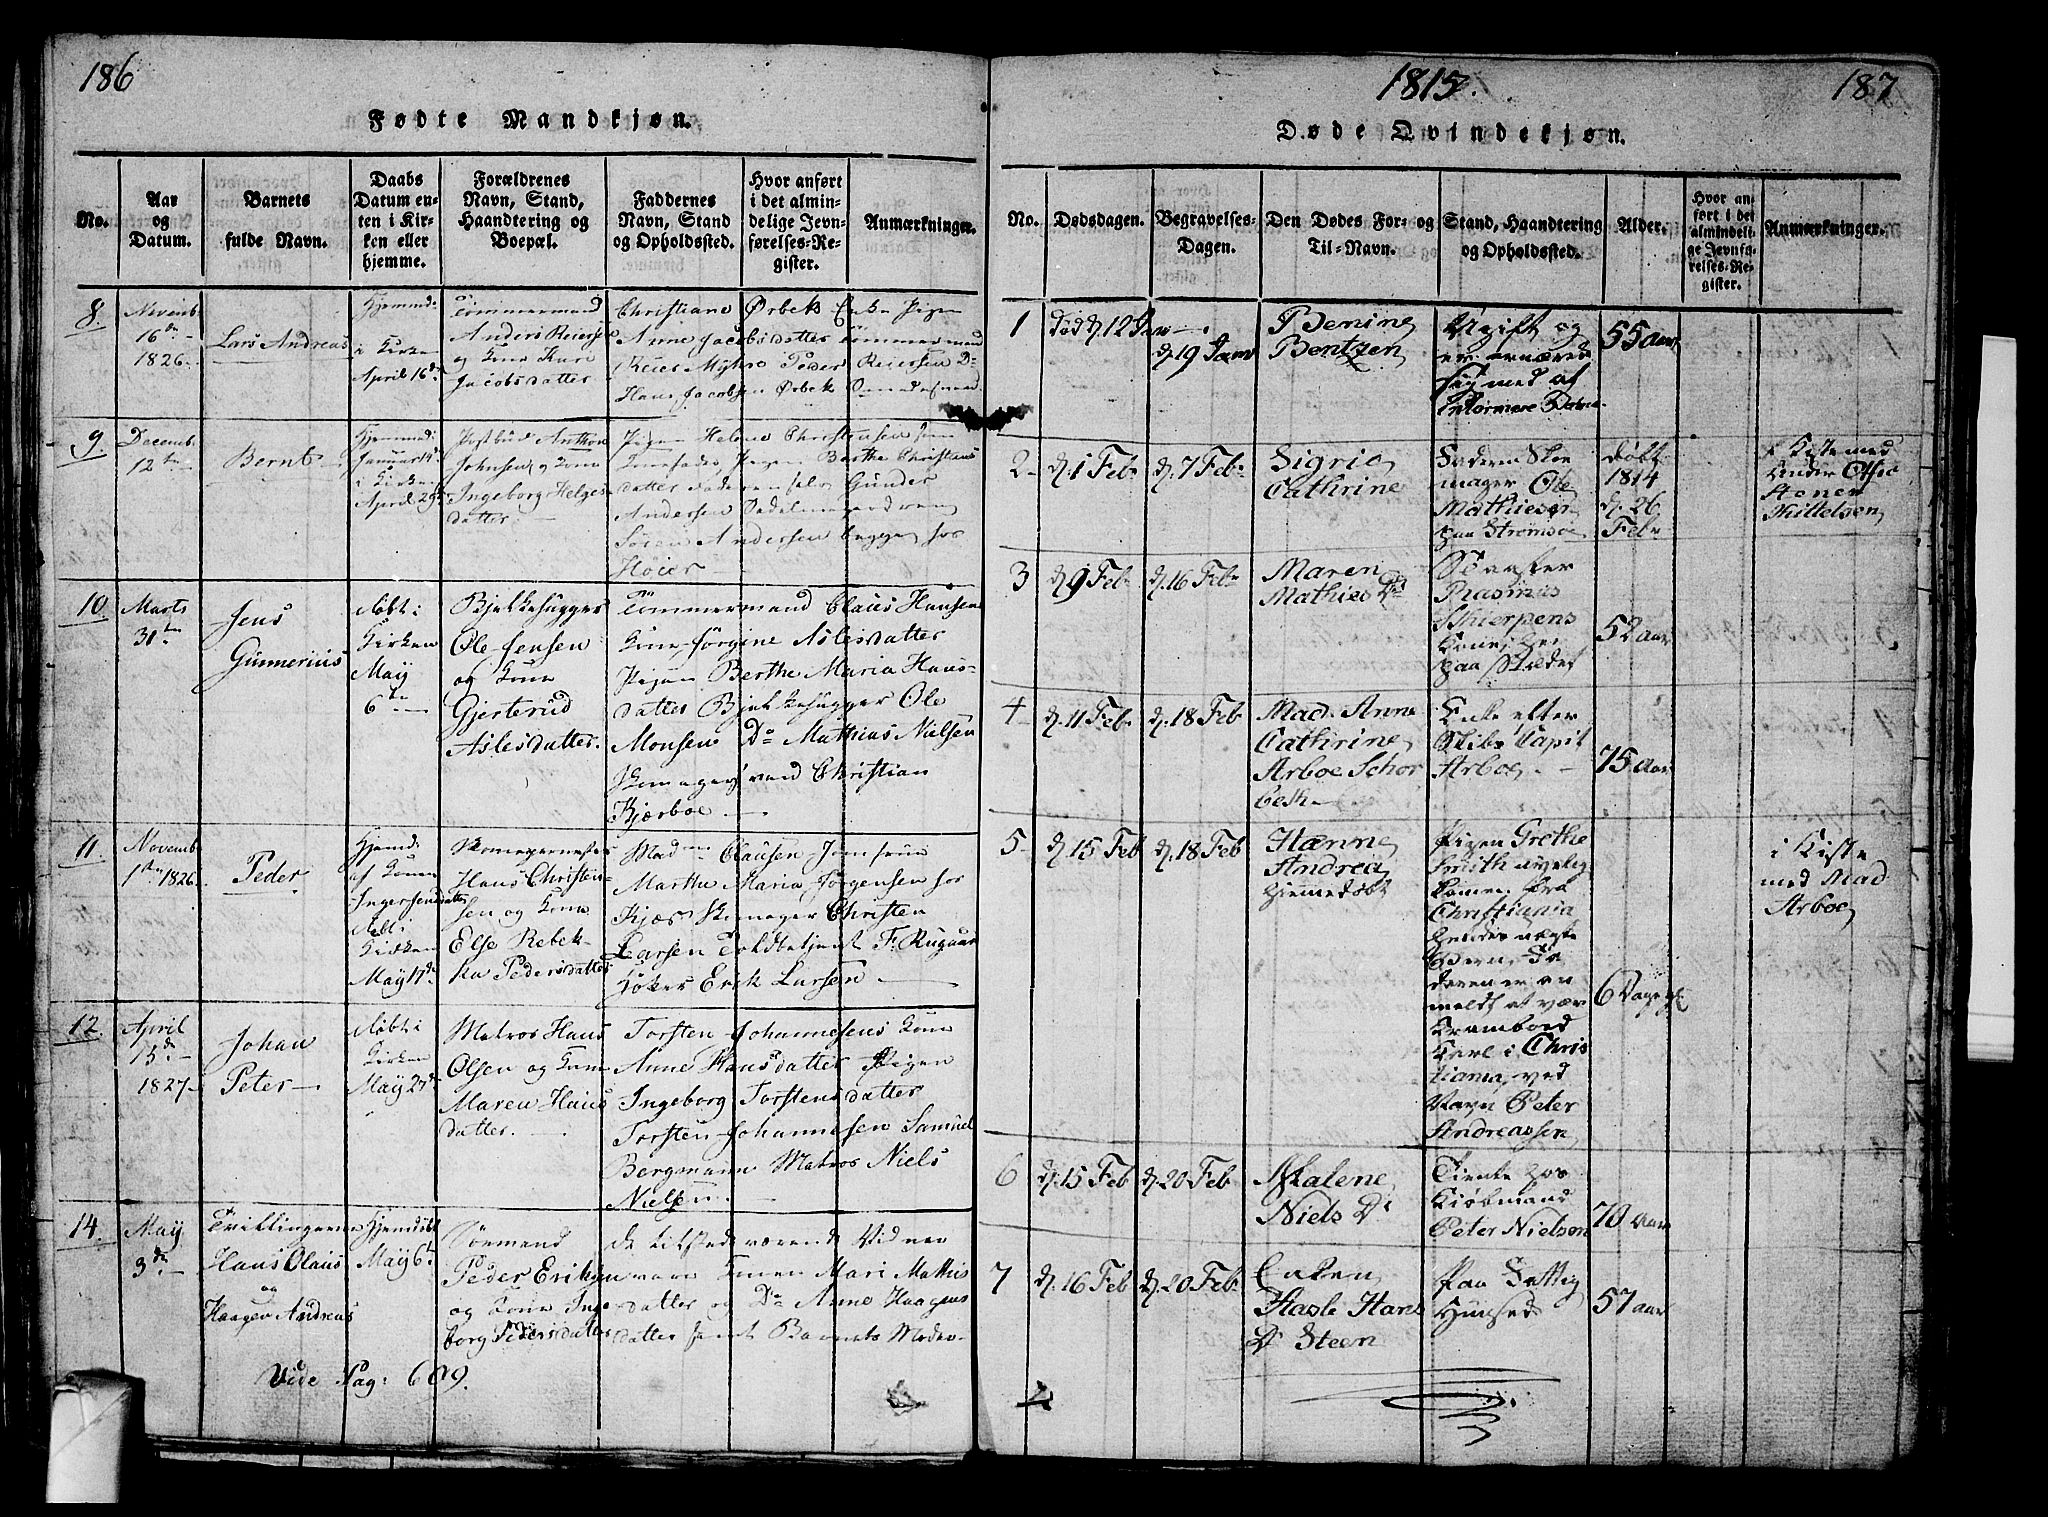 186
Fødte Mandkjøn.
No.
Aar
og
Datum.
Barnets
fulde Navn.
Daabs
Datum en-
ten i Kir-
ken eller
hjemme.
Forældrenes
Navn, Stand,
Haandtering og
Boepæl.
Faddernes
Navn, Stand
og Opholdssted.
Hvor anført
i det almin-
delige Jevn-
førelses-Re-
gister.
Anmærkninger.
8.
Novemb:
16de
1826.
Lars Andreas
Hjemmed:
i Kirken
April 16de
Tømmermand
Anders Reiersen
og Kone Kari
Jacobsdatter
Christiane Ørbek Enke Pigen
Anne Jacobsdatter Tømmermand
Reier Myhre Peder Reiersen Do
Hans Jacobsen Ørbek
9.
Decemb:
12te
Bernt
Hjemmed:
Januar 14de
i Kirken
April 29de
Postbud Anthon
Johnsen og Kone
Ingeborg Helges-
datter.
Pigen Helene Christensen
Pigen Berthe Christians
datter Faderen selv Gunder
Andersen Sadelmagersvend
Søren Andersen begge hos
Høier
10.
Marts
31te
Jens
Gunnerius
døbt i
Kirken
May
6te
Bjelkehugger
Ole Jensen
og Kone
Gjerterud
Aslesdatter.
Tømmermand Claus Hansens
Kone Jørgine Aslesdatter
Pigen Berthe Maria Hans-
datter Bjelkehugger Ole
Monsen Do Mathias Nielsen
Skomagersvend Christian
Bjerboe
11.
Novemb:
1te 1826.
Peder
Hjemd:
af Konen
Ingersensdatter
døbt i
Kirken
May 17de
Skomagermester
Hans Christen-
sen og Kone
Else Rebek-
ka Pedersdatter
Mad Clausen Jomfrue
Marthe Maria Jørgensen hos
Kjær Skomager Christen
Larsen Toldbetjent F: Rugaar
Høker Erik Larsen
12.
April
15de
1827
Johan
Peter
døbt i
Kirken
May 27de
Matros Hans
Olsen og Kone
Maren Hans
datter.
Torsten Johannesens Kone
Anne Hansdatter Pigen
Ingeborg Torstensdatter
Torsten Johannesen Samuel
Bergmann Matros Niels
Nielsen.
14.
May
3de
Trillingerne
Hans Olaus
og
Haagen Andreas
Hjemdøbt
May 6te
Sømand
Peder Eriksen
og Kone Inge
borg Pedersdatter
De tilstedeværende Vidner
vare Konen Mari Mathis
datter og Do Anne Haagens
datter samt Barnets Moder
Vide Pag: 609.
1815.
187
Døde Qvindekjøn.
No.
Dødsdagen.
Begravelses-
Dagen.
Den Dødes For- og
Til-Navn.
Stand, Haandtering
og Opholdssted.
Alder.
Hvor an-
ført i det
almindeli-
ge Jevnfø-
relses-Re-
gister.
Anmærkninger.
1
død d. 12 Janr
d. 19 Janr
Benine
Bentzen
Ugift og
er ernæred
sig med at
informere Børn.
55 aar
2
d. 1 Feb
d. 7 Febr
Sigrie
Cathrine
Faderen Skoe
mager Ole
Mathiesen
paa Strømsoe
døbt
1814
d. 26
Febr
i Kiste med
under Offic
Stener
Kittelsen
3
d. 9 Feb
d. 16 Febr
Maren
Mathies Dr
Rasmus
Skierpens
Kone, her
paa Stædet
52 aar
4
d. 11 Feb
d. 18 Feb
Mad. Anne
Cathrine
Arboe Schor
beck
Enke efter
Skibs Capit
Arboe.
75 Aar
5
d. 15 Feb
d. 18 Feb
Hanne
Andrea
hiemmedøbt
Pigen Grethe
Frith
kommen fra
Christiania
hendes uægte
Barn, Fa
deren er an
meldt at vær
Krambod
Karl i Chris
tiania, ved
Navn Peter
Andreassen
6 Dage gl
i Kiste
med Mad
Arboe
6
d. 15 Feb
d. 20 Feb
Malene
Niels Dr
Tiente hos
Kiøbmand
Peter Nielsen
70 aar
7
d. 16 Feb
d. 20 Feb
Enken
Hasle Hans
Dr Steen
Paa Fattig
Huused
57 aar